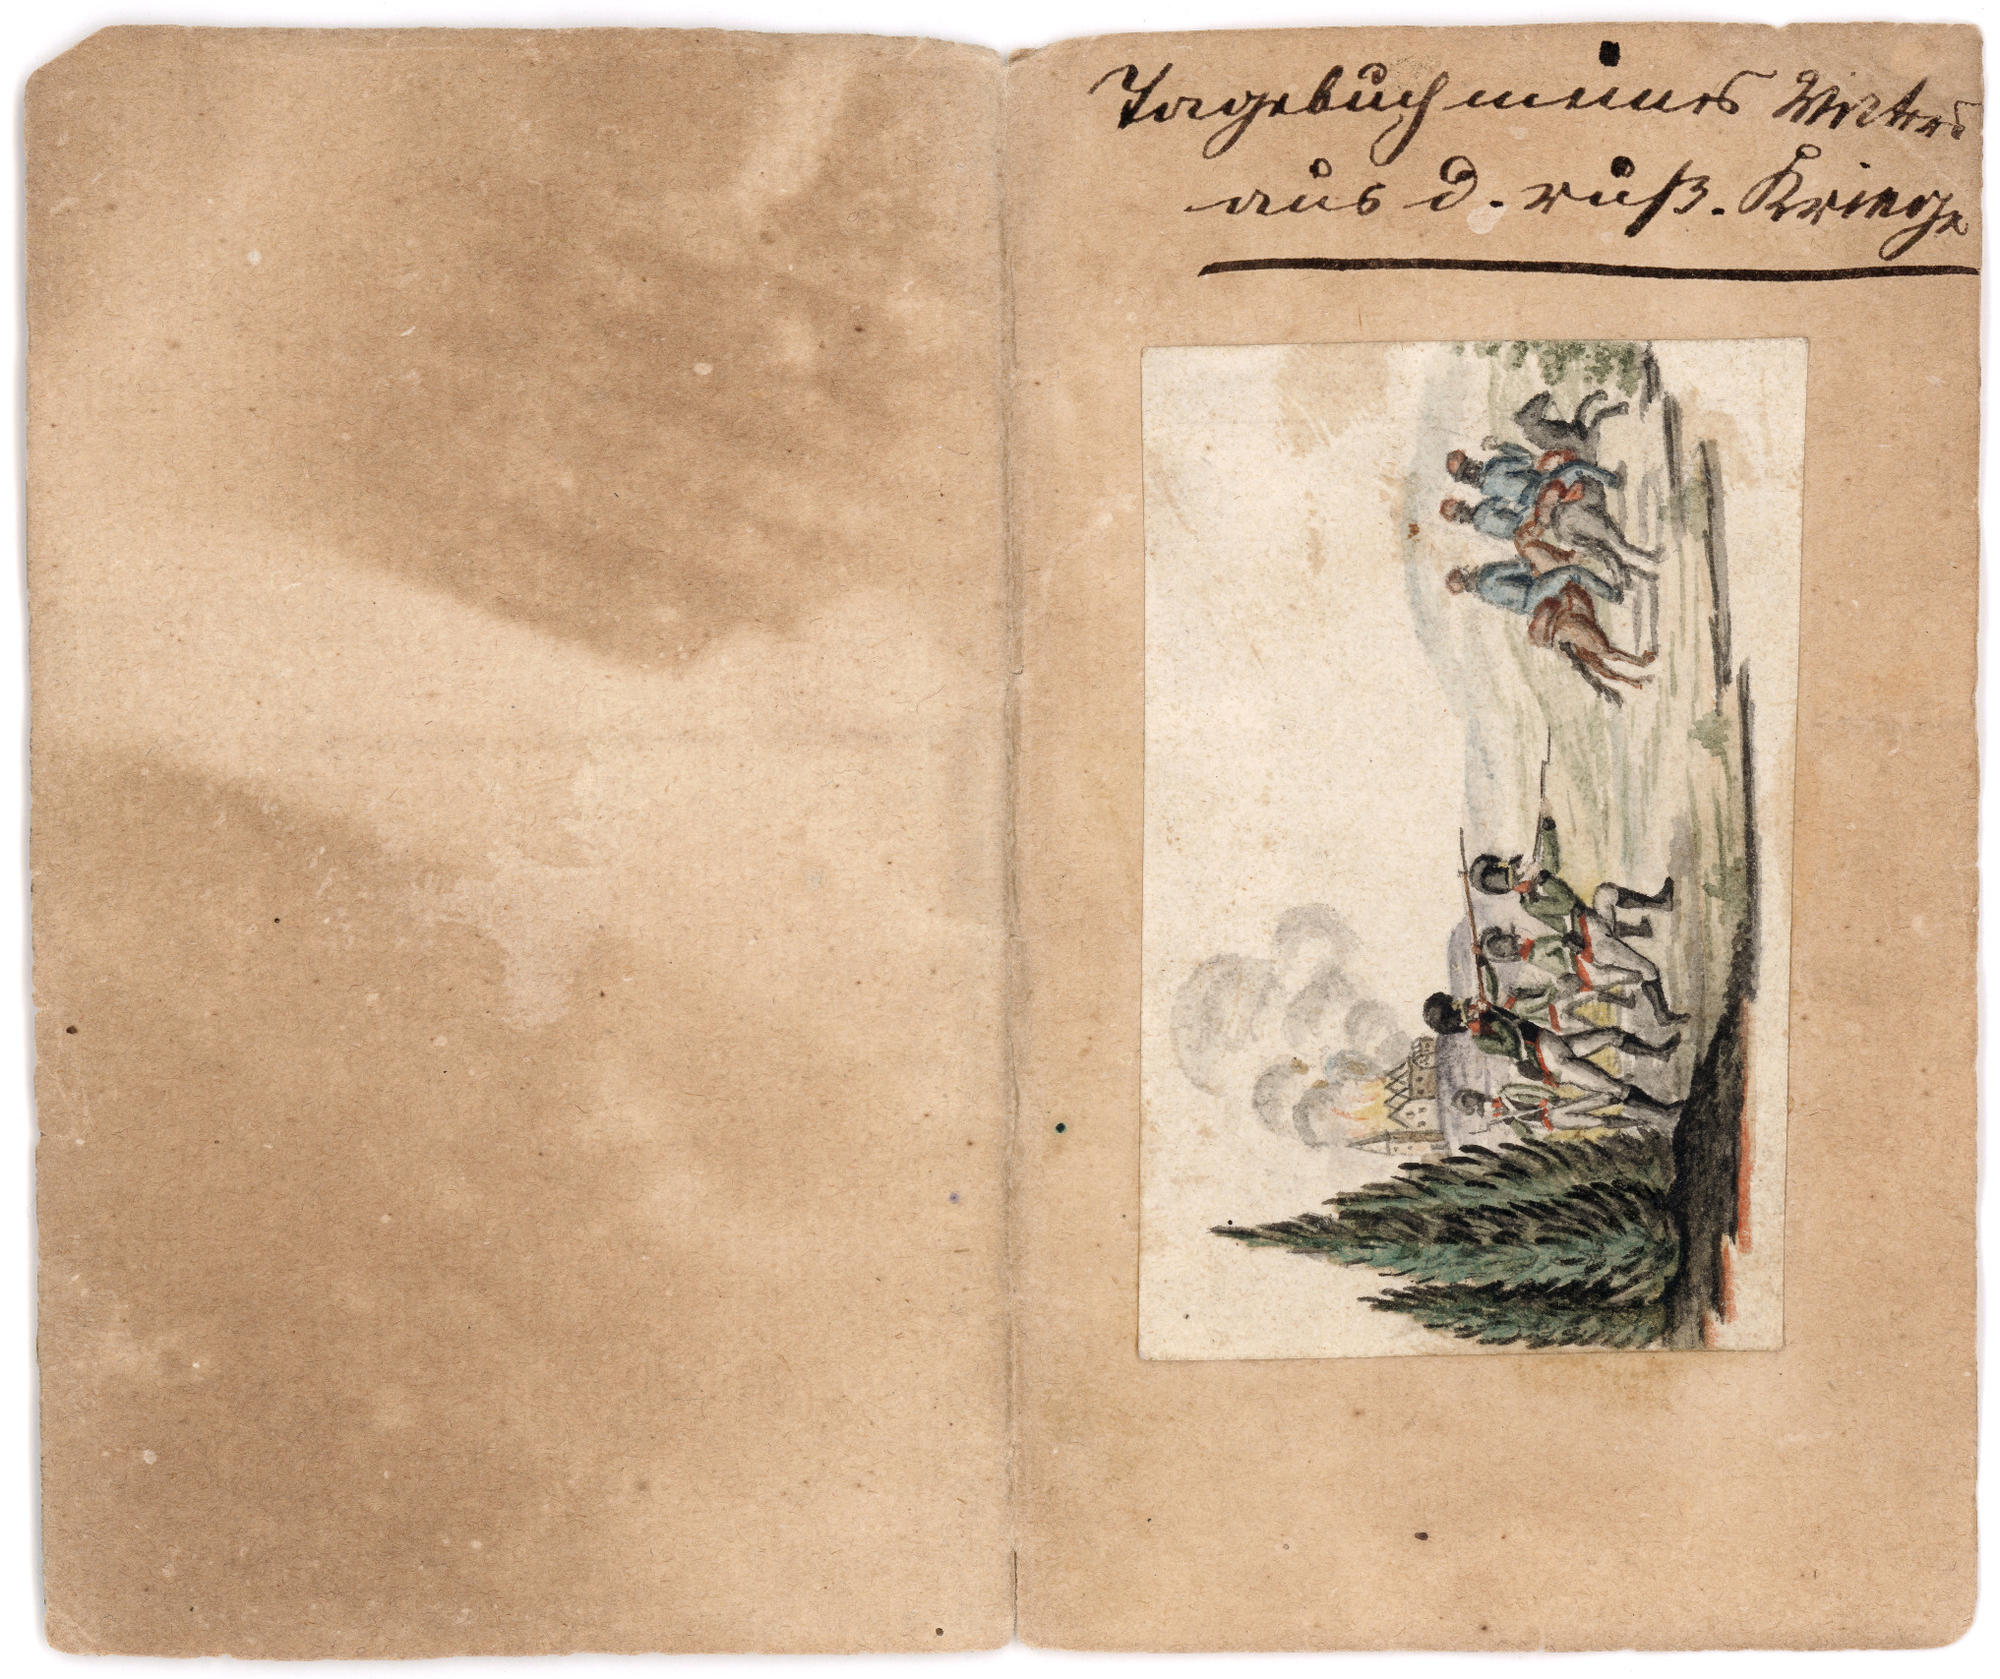 Tagebuch meines Vaters
aus d. ruß. Kriege